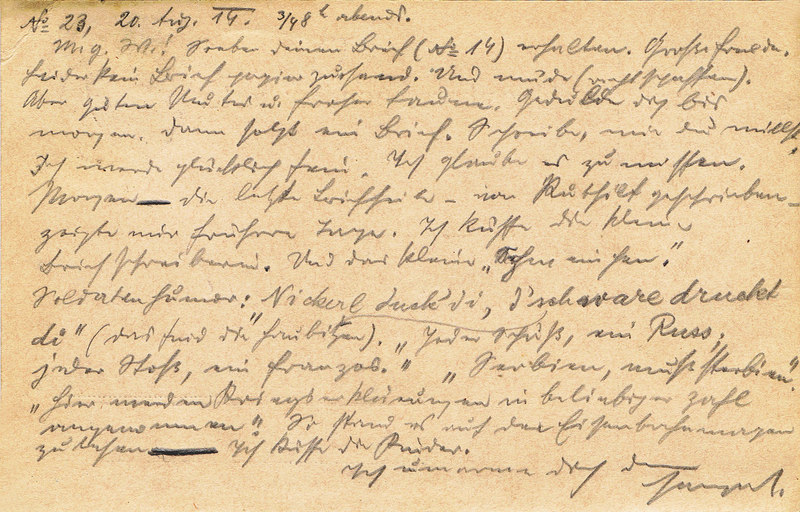 No 23, 20. Aug. 14. 3/4 8h abends.
Mig. W.! Soeben deinen Brief (No 14) erhalten. Große Freude.
Leider kein Briefpapier zurhand. Und müde (rechtschaffen).
Aber guten Mutes u. froher Laune. Gedulde dich bis
morgen. Dann folgt ein Brief. Schreibe, wie du willst,
Ich werde glücklich sein. Ich glaube es zu wissen.
Morgen – die letzte Briefseite – von Ruthilf geschrieben –
zeigte mir frühere Tage. Ich küsse die kleine
Briefschreiberin. Und das kleine
Soldatenhumor: Nickerl duck' di, d'schware druckt
di" (das sind die Haubitzen). „Jeder Schuß, ein Russ,
jeder Stoß, ein Franzos." „Serbien, muß sterbien."
„Hier werden Kriegserklärungen in beliebiger Zahl
angenommen" So stand es auf den Eisenbahnwagen
zu lesen – Ich küsse die Kinder.
Ich umarme dich